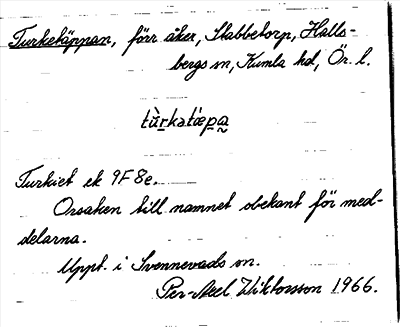 Turketäppan, förr åker, Stabbetorp, Halls-
bergs sn, Kumla hd, Ör. l.
tùrkatǽpa
Turkiet ek 9F8e.
Orsaken till namnet obekant för med-
delarna.
Uppt. i Svennevads sn.
Per-Axel Wiktorsson 1966.